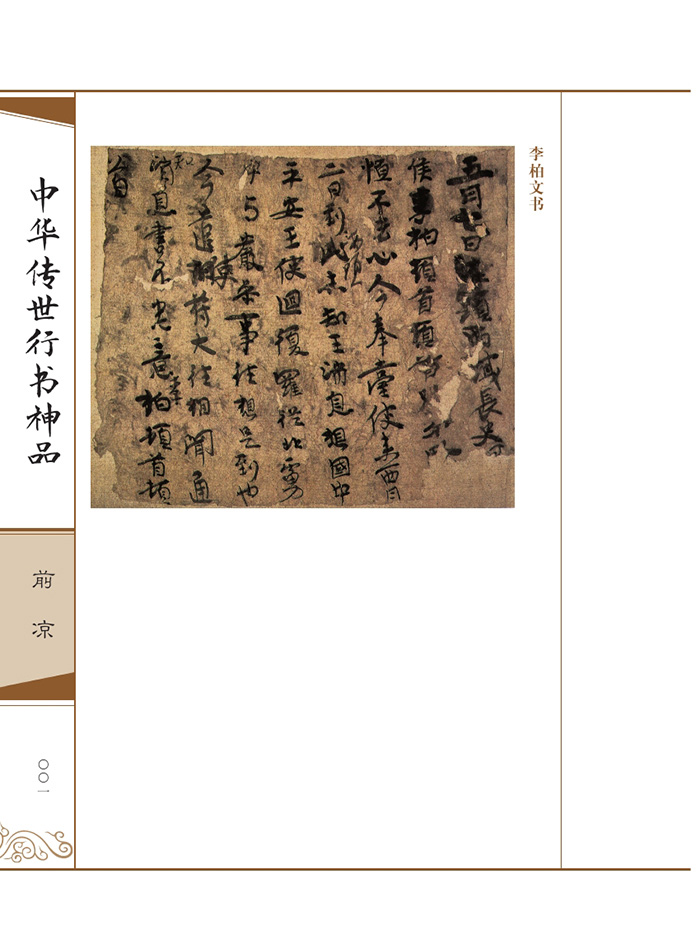 李柏文书
五月七日海頭西域長史
侯李柏頓首頓首
恒不去心今奉臺使来西月
二日到此未知王消息想國中
海頭
平安王使迴復羅從北虜
中与嚴参事往想是到也
今遣使苻大往相聞通
知消息書不悉意李柏頓首頓
首
中华传世行书神品
前凉
〇〇一